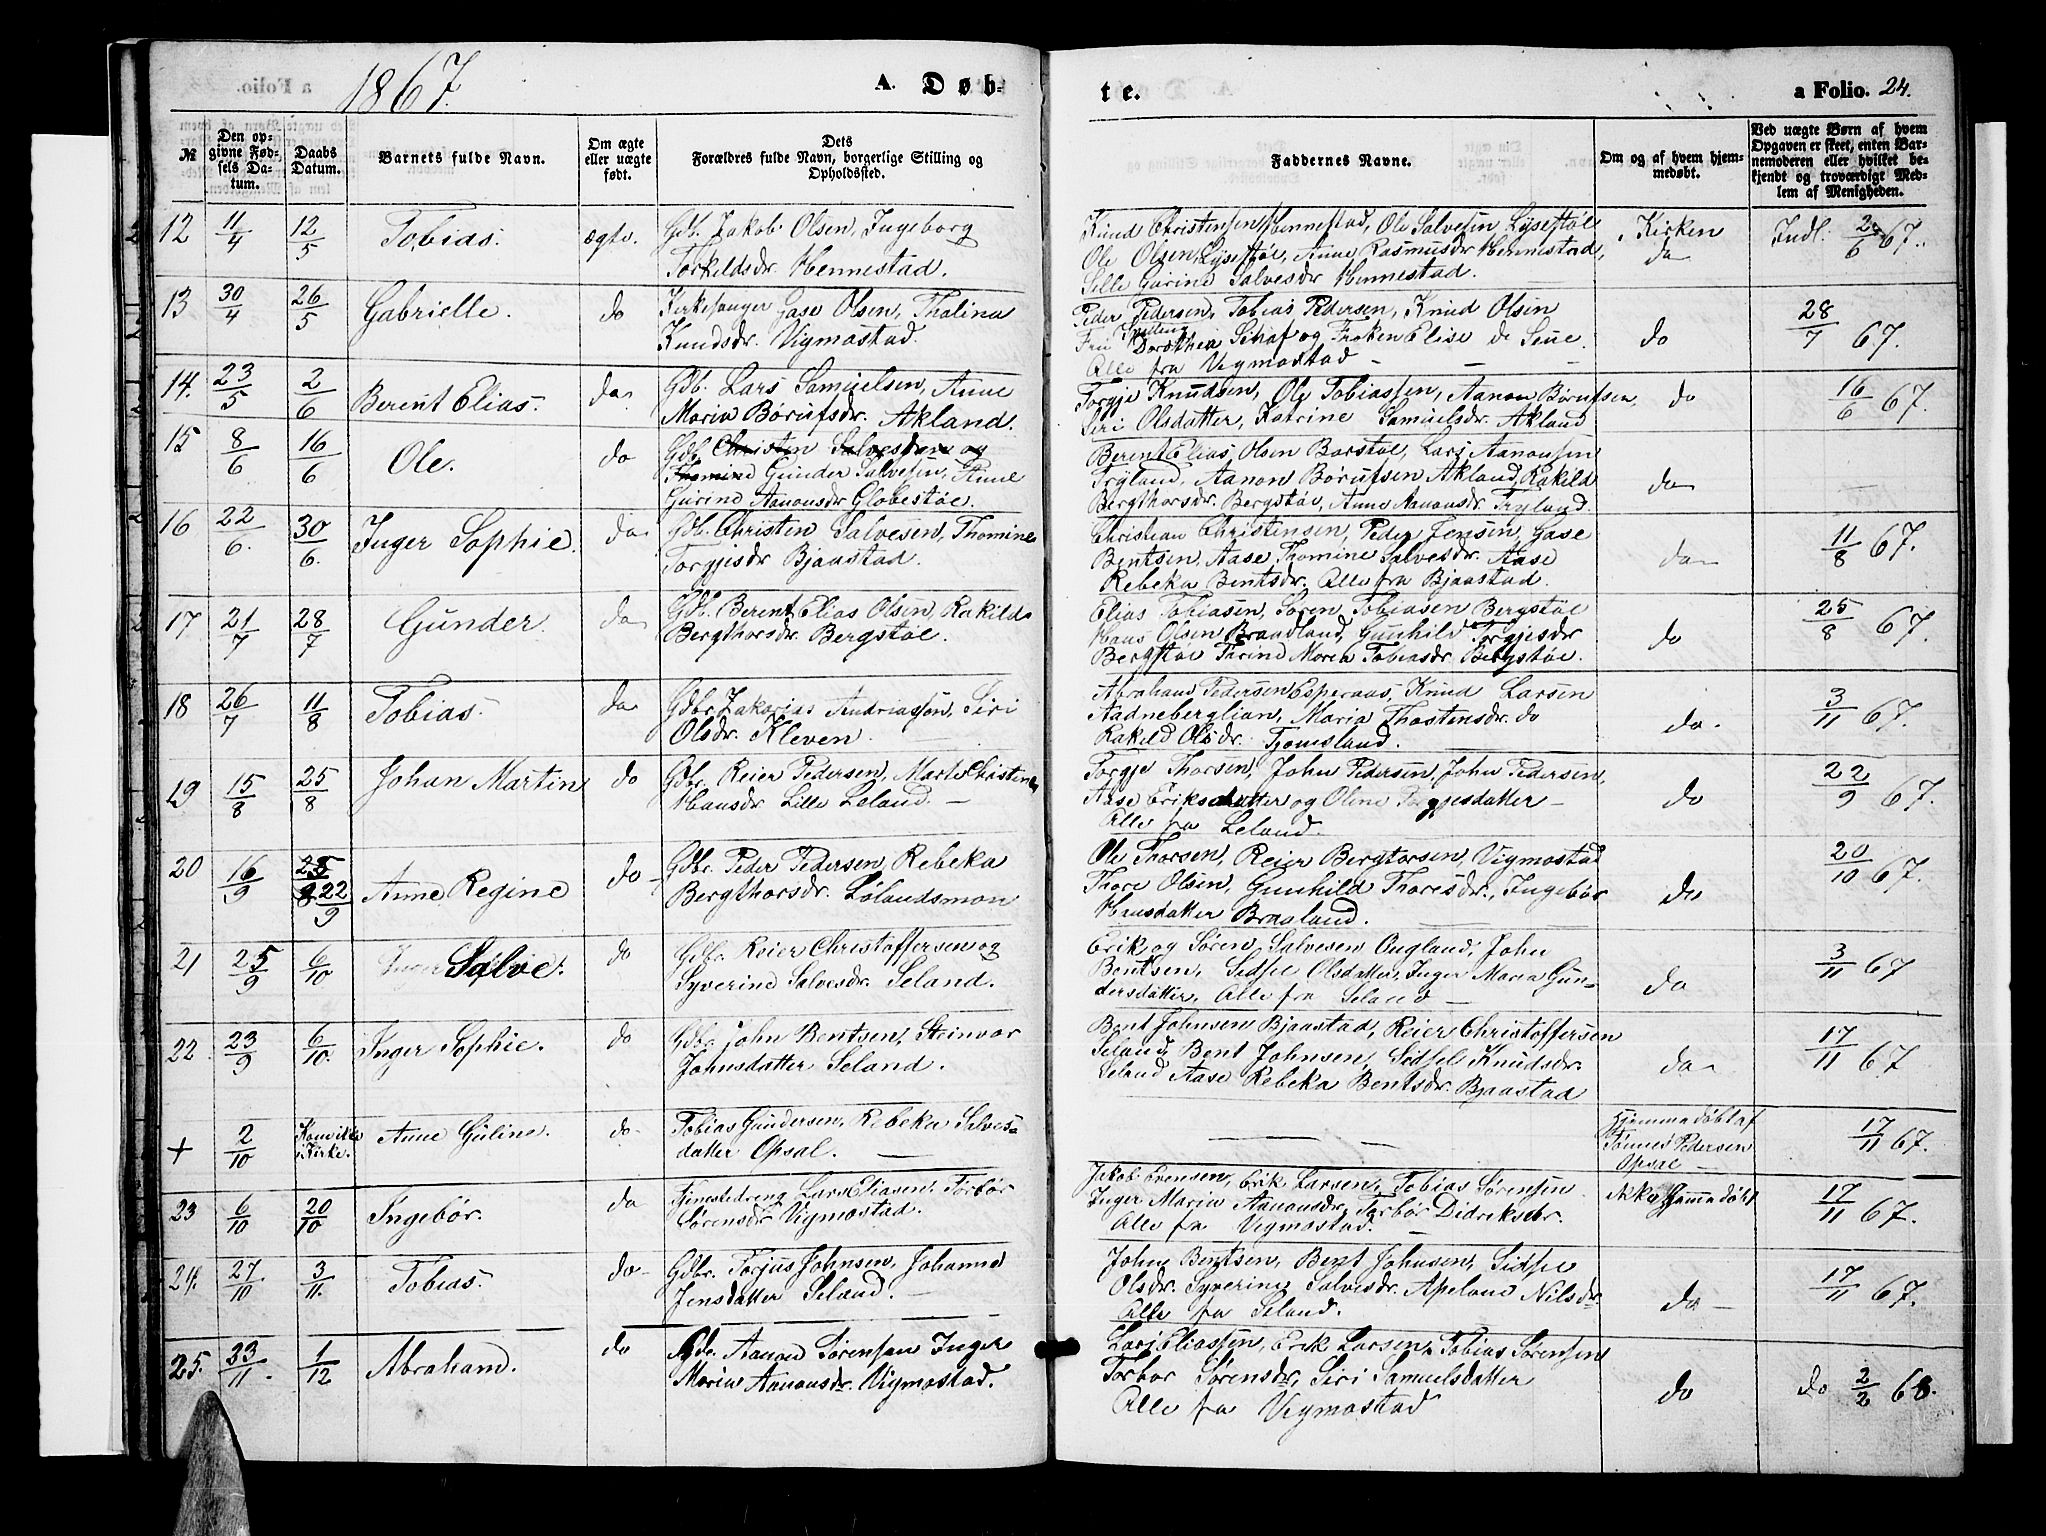 1867. A. Døb-
№
Den op-
givne Fød-
sels Da-
tum.
Daabs
Datum.
Barnets fulde Navn.
Om ægte
eller uægte
født.
Dets
Forældres fulde Navn, borgerlige Stilling og
Opholdssted.
12 11/4 12/5 Tobias. ægte. Gdb. Jakob Olsen, Ingeborg
Torkildsdr. Hennestad.
13 30/4 26/5 Gabrielle. do Kirkesanger Gase Olsen, Thalina
Knudsdr. Vigmostad.
14. 23/5 2/6 Berent Elias. do Gdb. Lars Samuelsen, Anne
Maria Børufsdr. Akland.
15 8/6 16/6 Ole. do Gdb. Christen Salvesen og
Thomine Gunder Salvesen, Anne
Gurine Aanonsdr Globestøl.
16 22/6. 30/6. Inger Sophie. do Gdb. Christen Salvesen, Thomine
Torgjisdr Bjaastad.
17 21/7 28/7 Gunder. do Gdb. Berent Elias Olsen, Rakild
Bergthorsdr. Bergstøl.
18 26/7 11/8 Tobias. do Gdbr. Zakarias Andriassøn, Siri
Olsdr. Kleven.
19 15/8 25/8 Johan Martin do Gdbr. Reier Pedersen, Marte Christine
Hansdr. Lille Leland. —
20 16/9 25/8 22/9 Anne Regine do Gdbr. Peder Pedersen, Rebeka
Bergthorsdr. Lølandsmon
21 25/9 6/10 Inger Salve. do Gdbr. Reier Christoffersen og
Syverine Salvesdr. Seland.
22 23/9 6/10. Inger Sophie. do Gdbr. John Bentsen, Steinvor
Johnsdatter Seland.
+ 2/10 Kom ikke
i Kirke. Anne Guline. do Tobias Gundersen, Rebeka Salves-
datter Opsal. —
23 6/10 20/10 Ingebør. do Tjenestedreng Lars Eliasen, Torbør
Sørensdr Vigmostad.
24. 27/10 3/11. Tobias. do Gdbr. Torjus Johnsen, Johanne
Jensdatter Seland. —
25. 23/11. 1/12 Abraham. do Gdb. Aanon Sørensen Inger
Maria Aanonsdr. Vigmostad.
te. a Folio. 24.
Faddernes Navne.
Om og af hvem hjem-
medøbt.
Ved uægte Børn af hvem
Opgaven er skeet, enten Bar-
nemoderen eller hvilket be-
kjendt og troværdigt Med-
lem af Menigheden.
Knud Christensen Hennestad, Ole Salvesen Lysestøl
Ole Olsen Lysestøl, Anne Rasmusdr Hennestad,
Sille Gurine Salvesdr Hennestad.
Kirken
do
Indl. 2/6 67.
Peder Pedersen, Tobias Pedersen, Knud Olsen
Fru Dorothea Schaf og Frøken Elise de Seue.
Alle fra Vigmostad —
do 28/7 67.
Torgje Knudsen, Ole Tobiassen, Aanon Børufsen,
Siri Olsdatter, Katrine Samuelsdr. Akland
do 16/6 67.
Berent Elias Olsen Barstøl, Lars Aanonsen
Tryland, Aanon Børufsen Akland, Rakild
Bergthorsdr. Bergstøl, Anne Aanonsdr. Tryland.
do —
Christian Christensen, Peder Jensen, Gase
Bentsen, Aase Thomine Salvesdr. Aase
Rebeka Bentsdr. Alle fra Bjaastad.
do 11/8 67.
Elias Tobiasen, Søren Tobiasen Bergstøl
Hans Olsen Braadland, Gunhild Torgjesdr
Bergstøl Tharine Maria Tobiasdr. Bergstøl.
do 25/8 67.
Abraham Pedersen Esperaas, Knud Larsen
Aadneberglian, Maria Thostensdr. do
Rakild Olsdr. Tjomsland.
do. 3/11 67.
Torgje Thorsen, John Pedersen, John Pedersen,
Aase Eriksdatter og Oline Torgjesdatter —
Alle fra Leland.
do 22/9 67.
Ole Thorsen, Reier Bergtorsen, Vigmostad
Thore Olsen, Gunhild Thoresdr., Ingebør
Hansdatter Braaland.
do 20/10 67.
Erik og Søren Salvesen Augland, John
Bentsen, Sidsel Olsdatter, Inger Maria Gun-
dersdatter, Alle fra Seland —
do 3/11 67
Bent Johnsen Bjaastad, Reier Christoffersen
Seland, Bent Johnsen, Sidsel Knudsdr.
Seland Aase Rebeka Bentsdr. Bjaastad
do 17/11 67
— — —
Hjemmedøbt af
Tønnes Pedersen
Opsal —
17/11 67.
Jakob Evensen, Erik Larsen, Tobias Sørensen
Inger Maria Aanonsdr, Torbør Didriksdr.
Alle fra Vigmostad.
ikke hjemmedøbt 17/11 67.
John Bentsen, Bent Johnsen, Sidsel
Olsdr. Syverine Salvesdr. Apelone Nilsdr
Alle fra Seland.
do — 17/11 67.
Lars Eliassen, Erik Larsen, Tobias Sørensen
Torbor Sørensdr, Siri Samuelsdatter
Alle fra Vigmostad
do do 2/2 68.